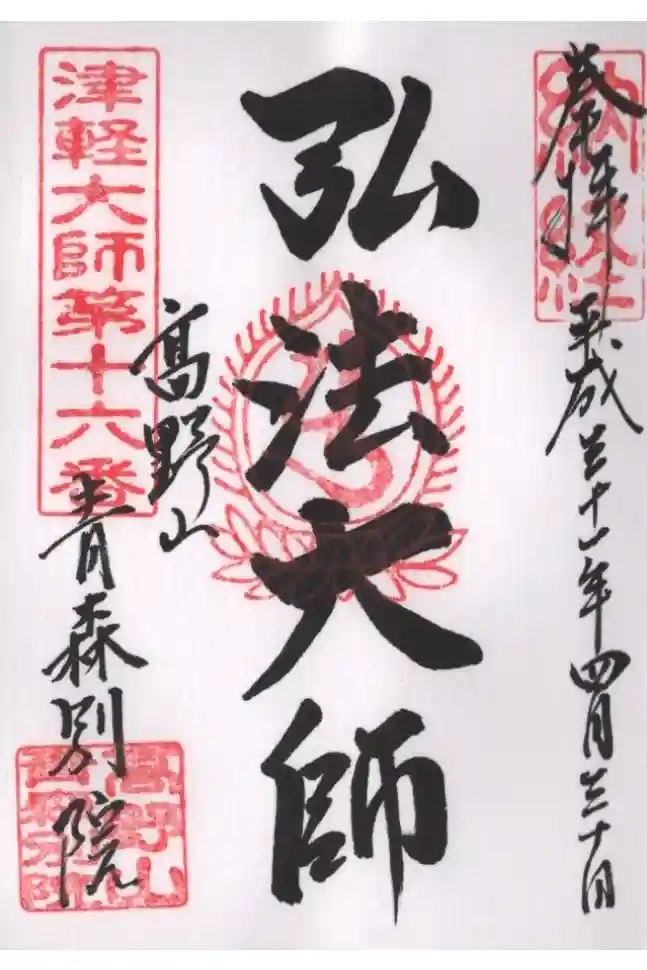 奉拝 平成三十一年四月三十日
納経
弘法大師
高野山
青森別院
津軽大師第十六番